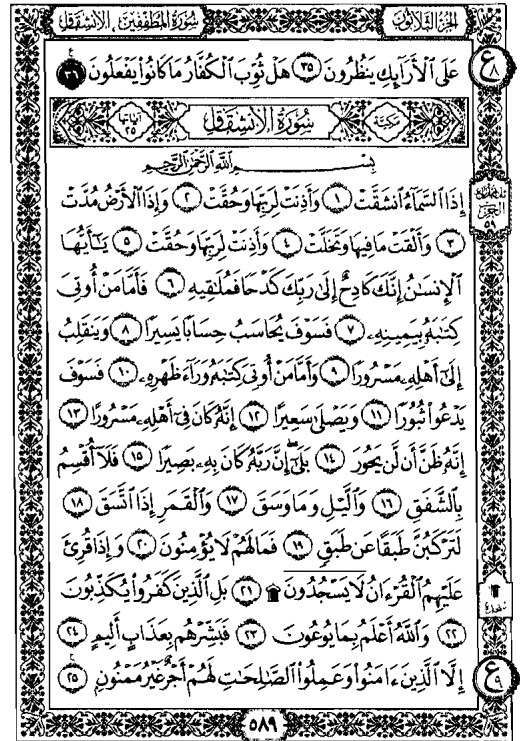 الجزء الثلاثون
سورة المطففين ، الانشقاق
عَلَى ٱلْأَرَآئِكِ يَنظُرُونَ ٣٥ هَلْ ثُوِّبَ ٱلْكُفَّارُ مَا كَانُوا۟ يَفْعَلُونَ ٣٦
ع ٨
مكية
سُورَةُ الانْشِقَاقِ
آياتها ٢٥
بِسْمِ ٱللَّهِ ٱلرَّحْمَٰنِ ٱلرَّحِيمِ
إِذَا ٱلسَّمَآءُ ٱنشَقَّتْ ١ وَأَذِنَتْ لِرَبِّهَا وَحُقَّتْ ٢ وَإِذَا ٱلْأَرْضُ مُدَّتْ
٣ وَأَلْقَتْ مَا فِيهَا وَتَخَلَّتْ ٤ وَأَذِنَتْ لِرَبِّهَا وَحُقَّتْ ٥ يَٰٓأَيُّهَا
ٱلْإِنسَٰنُ إِنَّكَ كَادِحٌ إِلَىٰ رَبِّكَ كَدْحًا فَمُلَٰقِيهِ ٦ فَأَمَّا مَنْ أُوتِىَ
كِتَٰبَهُۥ بِيَمِينِهِۦ ٧ فَسَوْفَ يُحَاسَبُ حِسَابًا يَسِيرًا ٨ وَيَنقَلِبُ
إِلَىٰٓ أَهْلِهِۦ مَسْرُورًا ٩ وَأَمَّا مَنْ أُوتِىَ كِتَٰبَهُۥ وَرَآءَ ظَهْرِهِۦ ١٠ فَسَوْفَ
يَدْعُوا۟ ثُبُورًا ١١ وَيَصْلَىٰ سَعِيرًا ١٢ إِنَّهُۥ كَانَ فِىٓ أَهْلِهِۦ مَسْرُورًا ١٣
إِنَّهُۥ ظَنَّ أَن لَّن يَحُورَ ١٤ بَلَىٰٓ إِنَّ رَبَّهُۥ كَانَ بِهِۦ بَصِيرًا ١٥ فَلَآ أُقْسِمُ
بِٱلشَّفَقِ ١٦ وَٱلَّيْلِ وَمَا وَسَقَ ١٧ وَٱلْقَمَرِ إِذَا ٱتَّسَقَ ١٨
لَتَرْكَبُنَّ طَبَقًا عَن طَبَقٍ ١٩ فَمَا لَهُمْ لَا يُؤْمِنُونَ ٢٠ وَإِذَا قُرِئَ
عَلَيْهِمُ ٱلْقُرْءَانُ لَا يَسْجُدُونَ ۩ ٢١ بَلِ ٱلَّذِينَ كَفَرُوا۟ يُكَذِّبُونَ
سجدة
٢٢ وَٱللَّهُ أَعْلَمُ بِمَا يُوعُونَ ٢٣ فَبَشِّرْهُم بِعَذَابٍ أَلِيمٍ ٢٤
إِلَّا ٱلَّذِينَ ءَامَنُوا۟ وَعَمِلُوا۟ ٱلصَّٰلِحَٰتِ لَهُمْ أَجْرٌ غَيْرُ مَمْنُونٍۭ ٢٥
ع ٩
٥٨٩